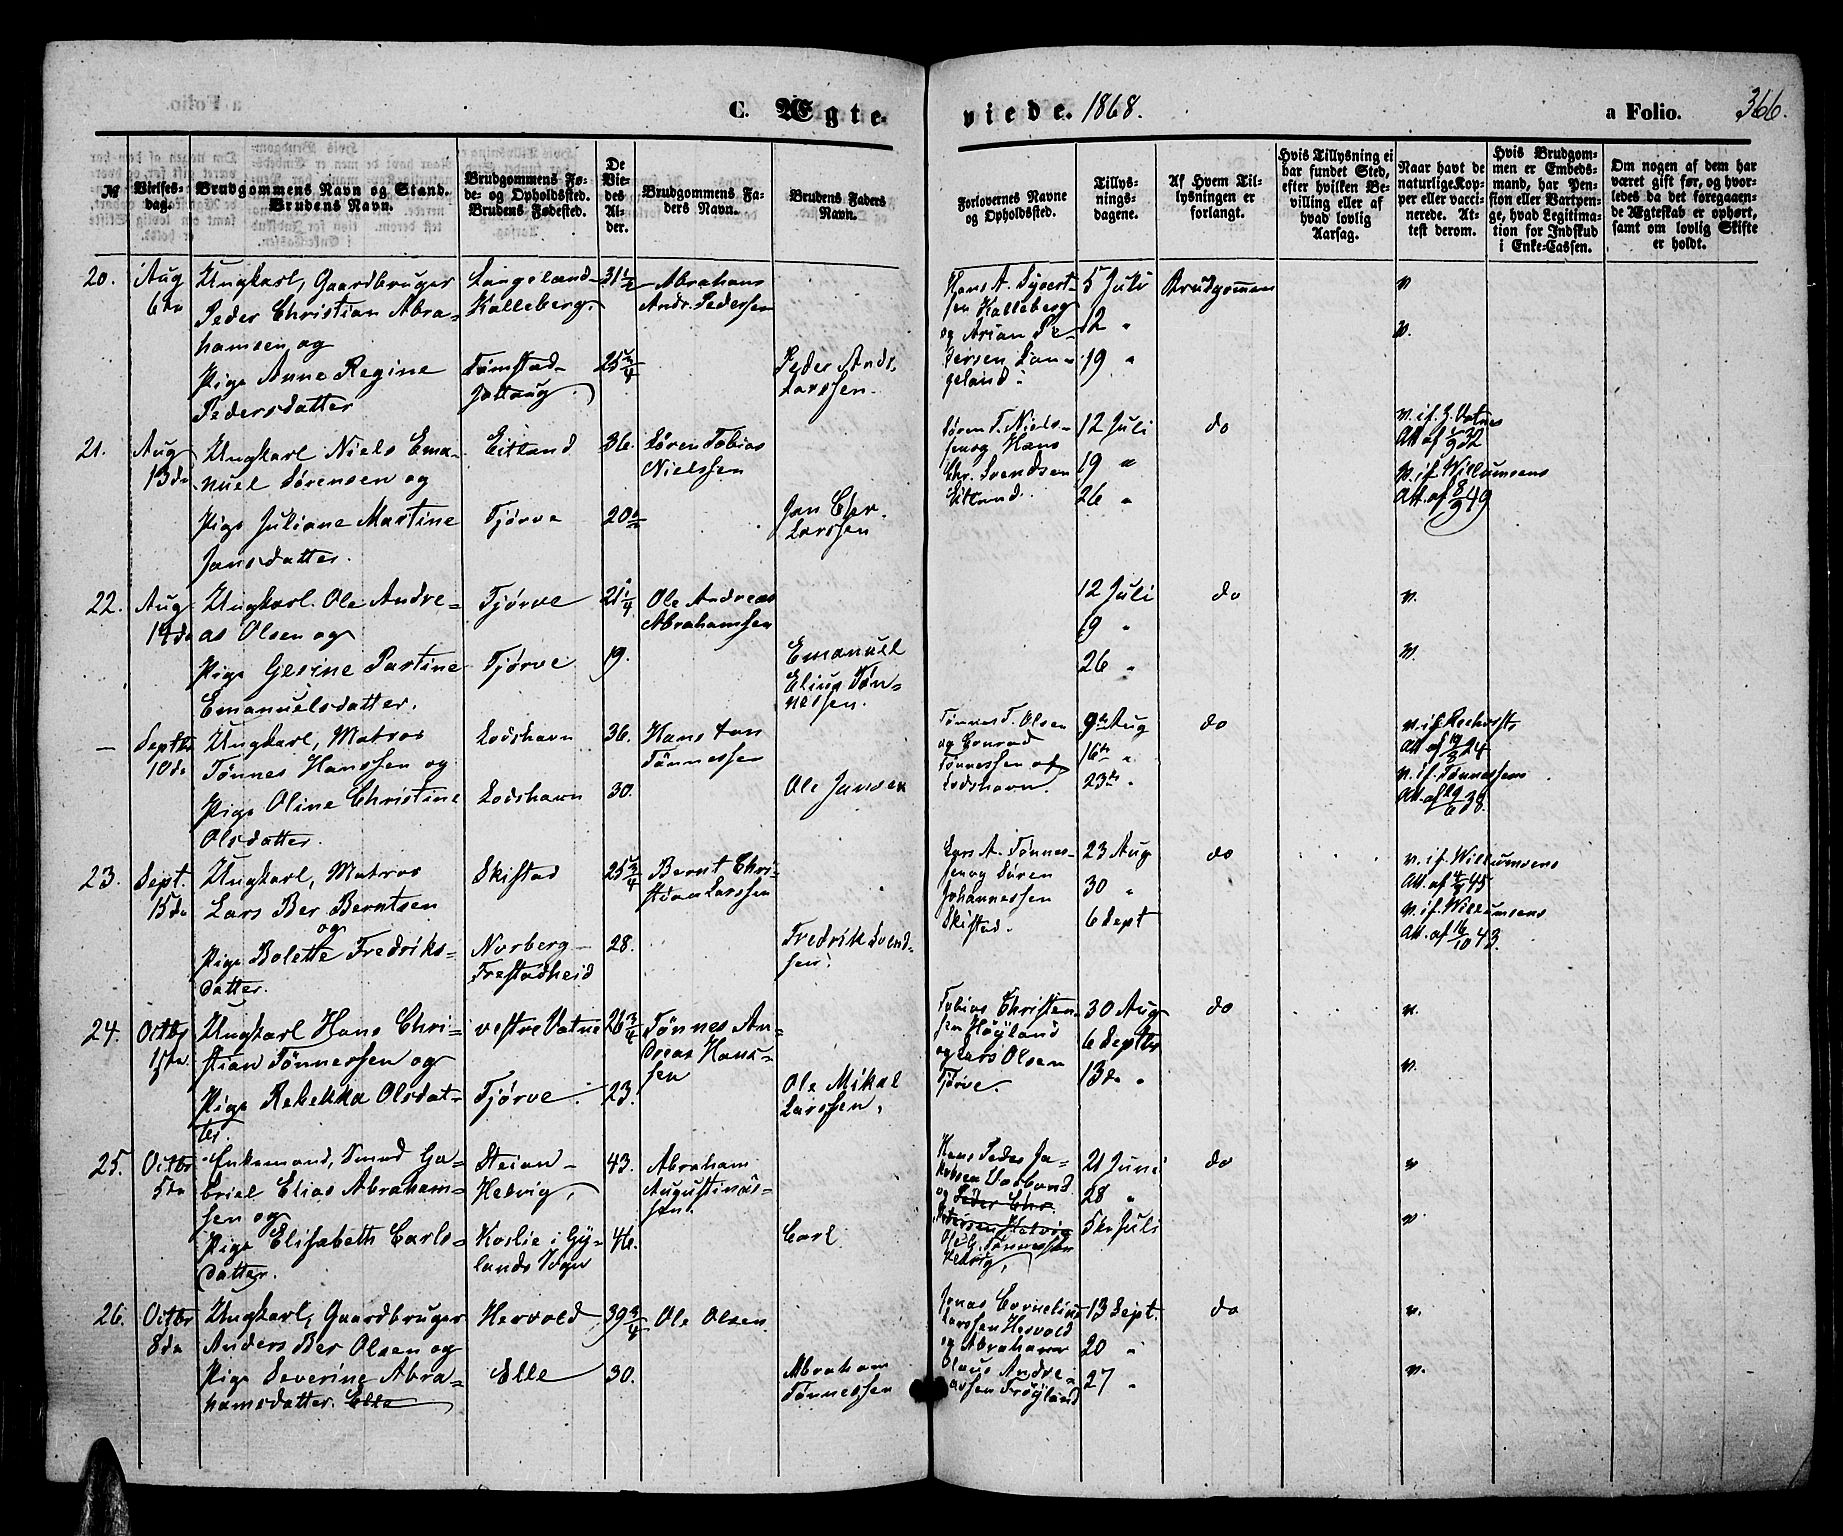 C. Ægte
viede. 1868.
a Folio.
366.
№
Vielses-
dag.
Brudgommens Navn og Stand.
Brudens Navn.
Brudgommens Fø-
de- og Opholdssted.
Brudens Fødested.
De
Vie-
des
Al-
der.
Brudgommens Fa-
ders Navn.
Brudens Faders
Navn.
Forlovernes Navne
og Opholdssted.
Tillys-
nings-
dagene.
Af Hvem Til-
lysningen er
forlangt.
Hvis Tillysning ei
har fundet Sted,
efter hvilken Be-
villing eller af
hvad lovlig
Aarsag.
Naar havt de
naturlige Kop-
per eller vacci-
nerede. At-
test derom.
Hvis Brudgom-
men er Embeds-
mand, har Pen-
sion eller Vartpen-
ge, hvad Legitima-
tion for Indskud
i Enke-Cassen.
Om nogen af dem har
været gift før, og hvor-
ledes da det foregaaen-
de Ægteskab er ophørt,
samt om lovlig Skifte
er holdt.
20.
Aug
6te
Ungkarl, Gaardbruger
Peder Christian Abra-
hamsen og
Pige Anne Regine
Pedersdatter
Langeland-
Kalleberg.
Tømstad-
Jølloug.
31 1/2
25 3/4
Abraham
Andr. Pedersen
Peder Andr.
Larssen.
Hans A. Syvert-
sen Kalleberg
og Arian Pe-
dersen Lan-
geland.
5 Juli
12 "
19 "
Brudgommen
v.
v.
21.
Aug
13de
Ungkarl Niels Ema-
nuel Sørensen og
Pige Juliane Martine
Jansdatter.
Eitland
Tjørve
36.
20 1/2
Søren Tobias
Nielssen
Jan Chr.
Larssen
Søren T. Niels-
sen og Hans
Chr. Svendsen
Eitland.
12 Juli
19 "
26 "
do
v. if. Z. Vatnes
Att. af 5/9 32
v. if. Willumsens
Att. af 8/9 49
22.
Aug
14de
Ungkarl. Ole Andre-
as Olsen og
Pige Gesine Partine
Emanuelsdatter.
Tjørve
Tjørve
21 1/4
19.
Ole Andreas
Abrahamsen
Emanuel
Elias Tøn-
nessen.
12 Juli
19 "
26 "
do
v.
v.
—
Septbr
10de
Ungkarl, Matros
Tønnes Hanssen og
Pige Oline Christine
Olsdatter.
Lodshavn
Lodshavn
36.
30.
Hans Jan
Tønnessen
Ole Jansen
Tønnes T. Olsen
og Conrad
Tønnessen af
Lodshavn.
9de Aug
16de "
23de "
do
v. if. Reehorsts
Att. af 19/8 24
v. if. Tønnessens
Att. af 29/6 38.
23.
Sept.
15de
Ungkarl, Matros
Lars Ber Berntsen
og
Pige Bolette Fredriks-
datter.
Skistad
Norberg-
Frestadheid
25 3/4
28.
Bernt Chri-
stian Larssen
Fredrik Svend-
sen.
Lars A. Tønnes-
sen og Søren
Johannessen
Skistad.
23 Aug
30 "
6 Sept
do
v. if. Willumsens
Att. af 4/9 45
v. if. Willumsens
Att. af 16/10 43.
24.
Octbr
1ste
Ungkarl Hans Chri-
stian Tønnessen og
Pige Rebekka Olsdat-
ter.
vestre Vatne
Tjørve.
26 3/4
23.
Tønnes An-
dreas Hans-
sen
Ole Mikal
Larssen.
Tobias Christen-
sen Høyland
og Lars Olsen
Tjørve.
30 Aug
6 Septbr
13de "
do
v.
v.
25.
Octbr
5te
Enkemand, Smed Ga-
briel Elias Abraham-
sen og
Pige Elisabeth Carls-
datter.
Steian-
Helvig,
Koslie i Gy-
lands Sogn
43.
46.
Abraham
Augustinus-
sen.
Carl.
Hans Peder Ja-
kobsen
og Peder Chr.
Pedersen Helvig
Ole G. Tønnessen
Helvig,
21 Juni
28 "
5te Juli
do
v
v.
26.
Octbr
8de
Ungkarl, Gaardbruger
Anders Ber Olsen og
Pige Severine Abra-
hamsdatter. Elle
Hervold
Elle
39 3/4
30.
Ole Olsen.
Abraham
Tønnessen
Jonas Cornelius
Larssen Hervold
og Abraham
Olaus Andre-
assen Frøyland
13 Sept.
20 "
27 "
do
v.
v.